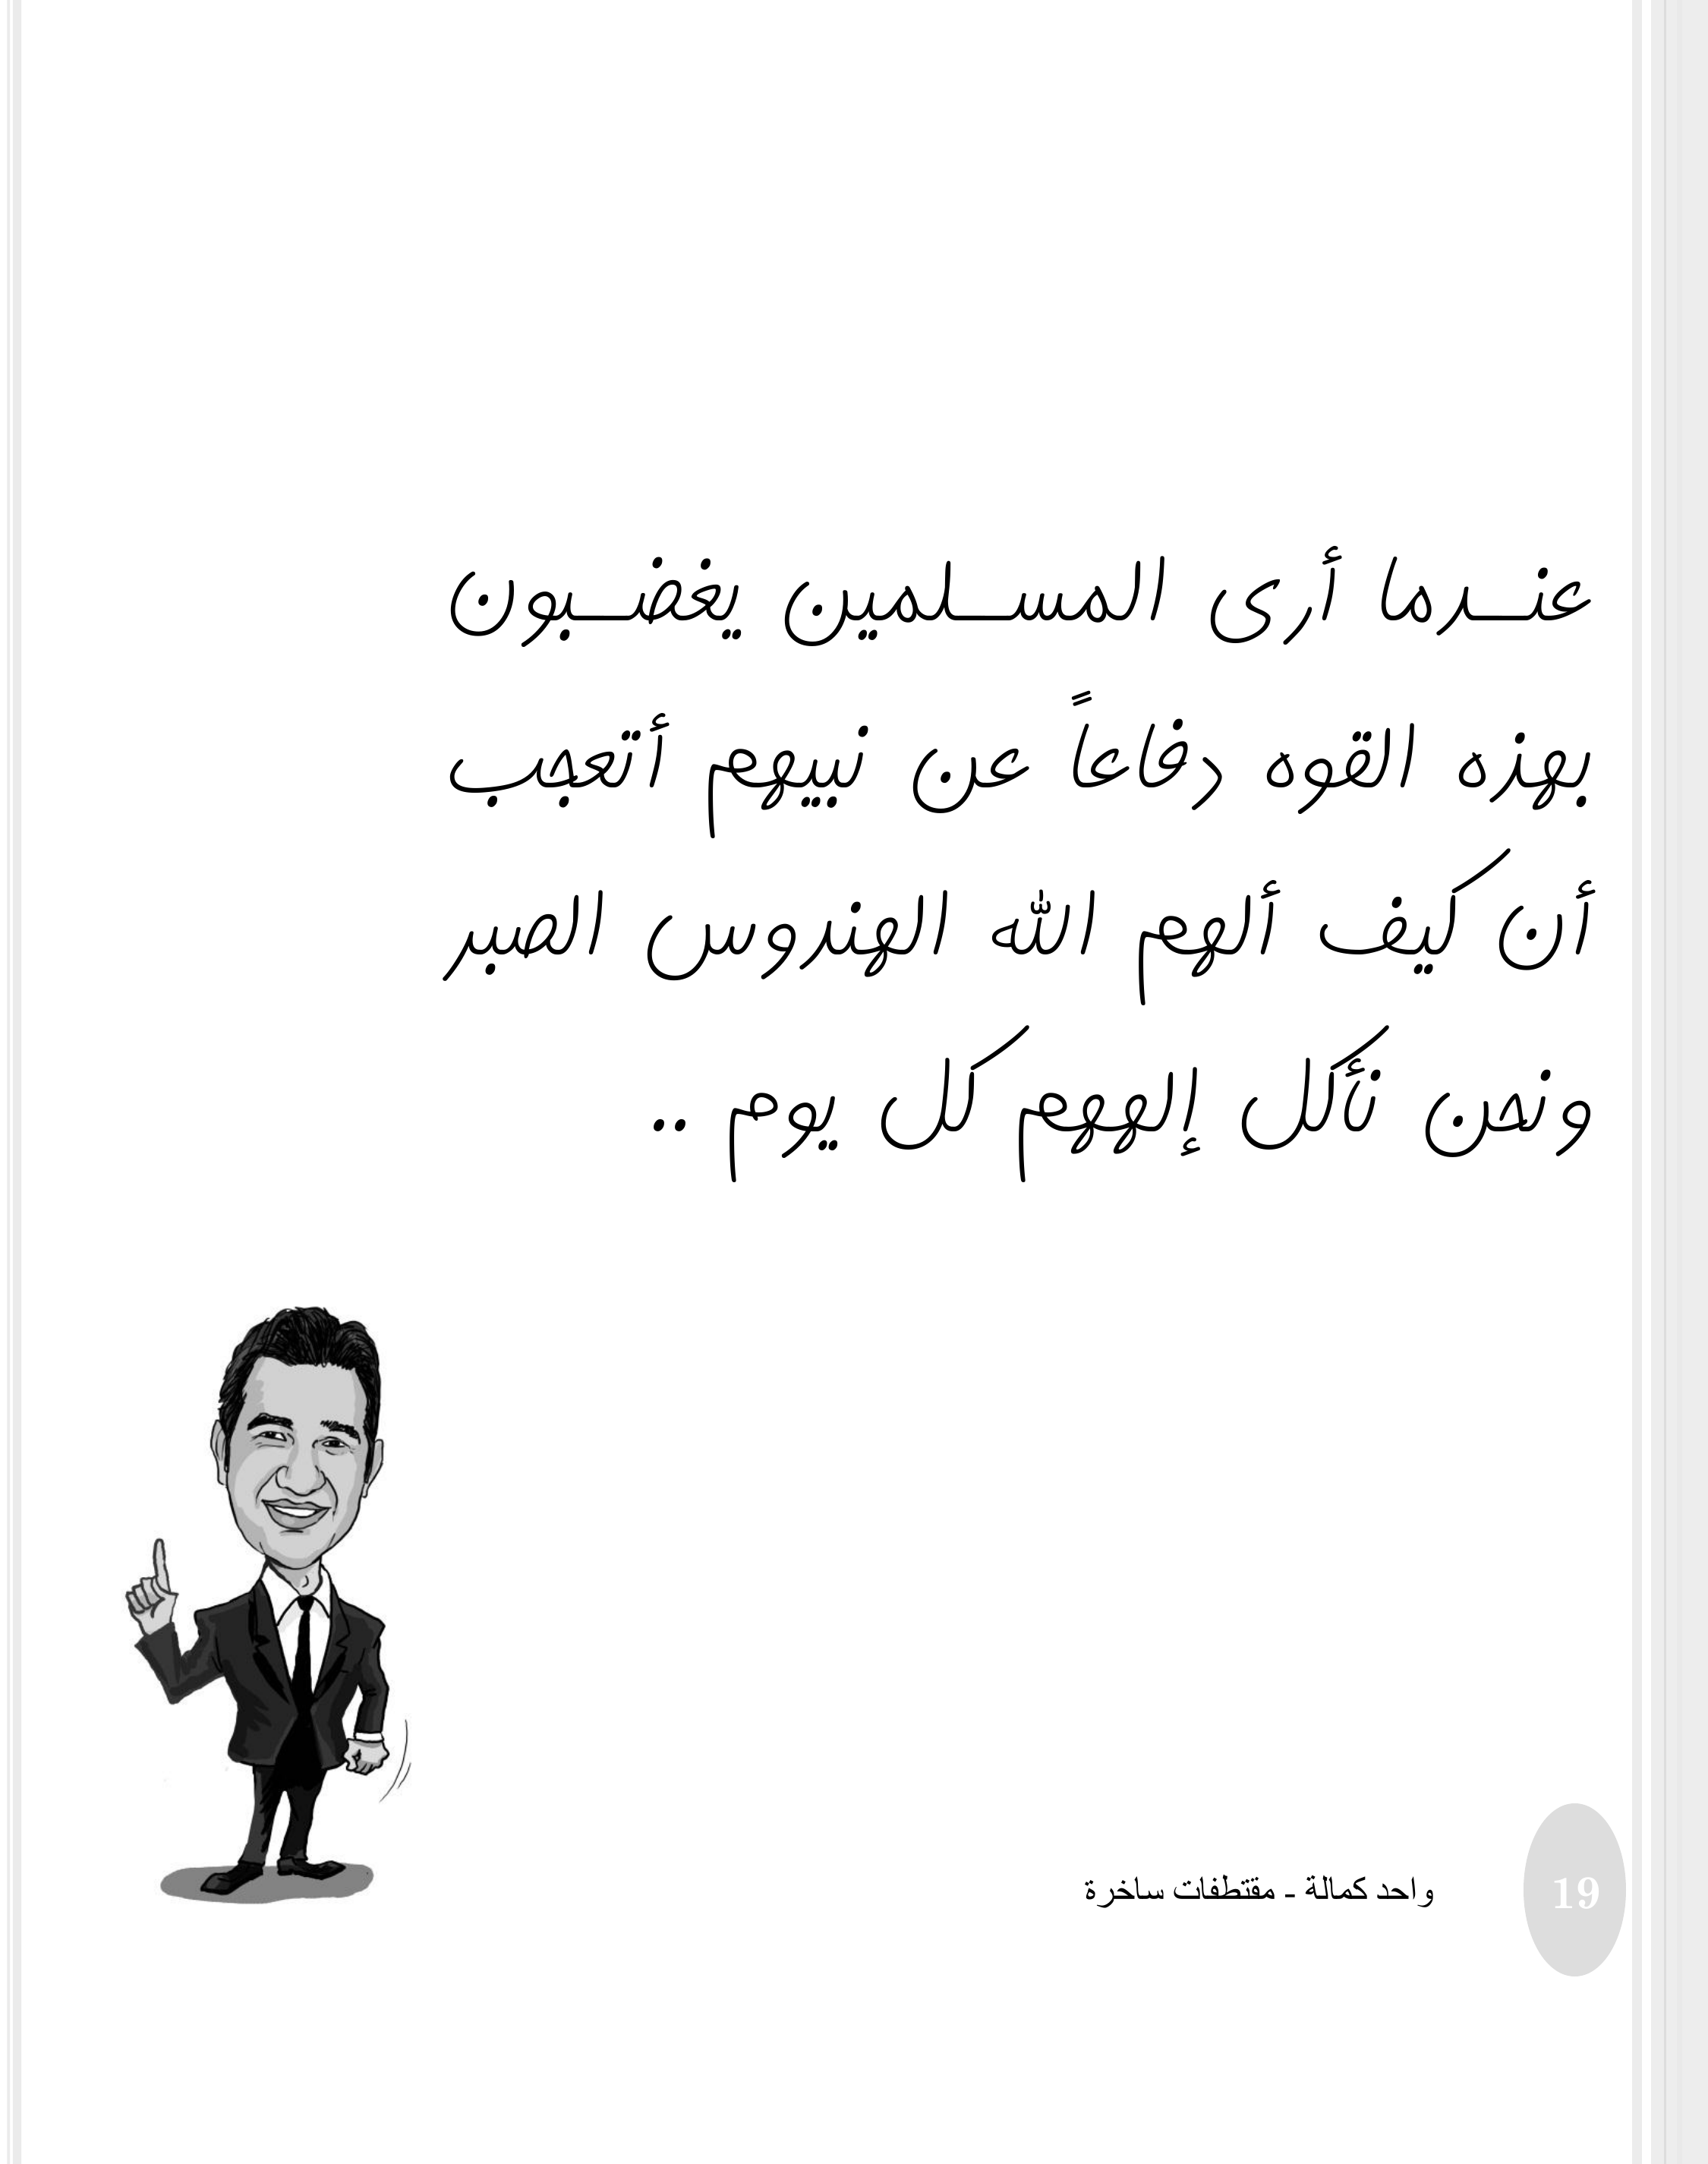 عندما أرى المسلمين يغضبون
بهذه القوه دفاعاً عن نبيهم أتعجب
أن كيف ألهم الله الهندوس الصبر
ونحن نأكل إلههم كل يوم ..
واحد كمالة - مقتطفات ساخرة
19